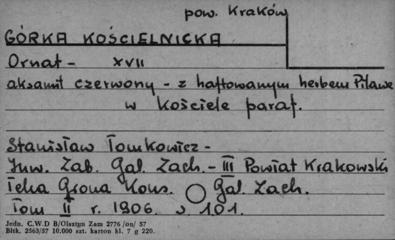 pow. Kraków
GÓRKA KOŚCIELNICKA
Ornat - XVII
aksamit czerwony - z haftowanym herbem Pilawa
w kościele paraf.
Stanisław Tomkowicz -
Inw. Zab. Gal. Zach. - III Powiat Krakowski
Teka Grona Kons. Gal. Zach.
Tom II r. 1906. s 101.
Jedn. C.W.D B/Olsztyn Zam 2776 /on/ 57
Bltk. 2563/57 10.000 szt. karton kl. 7 g 220.